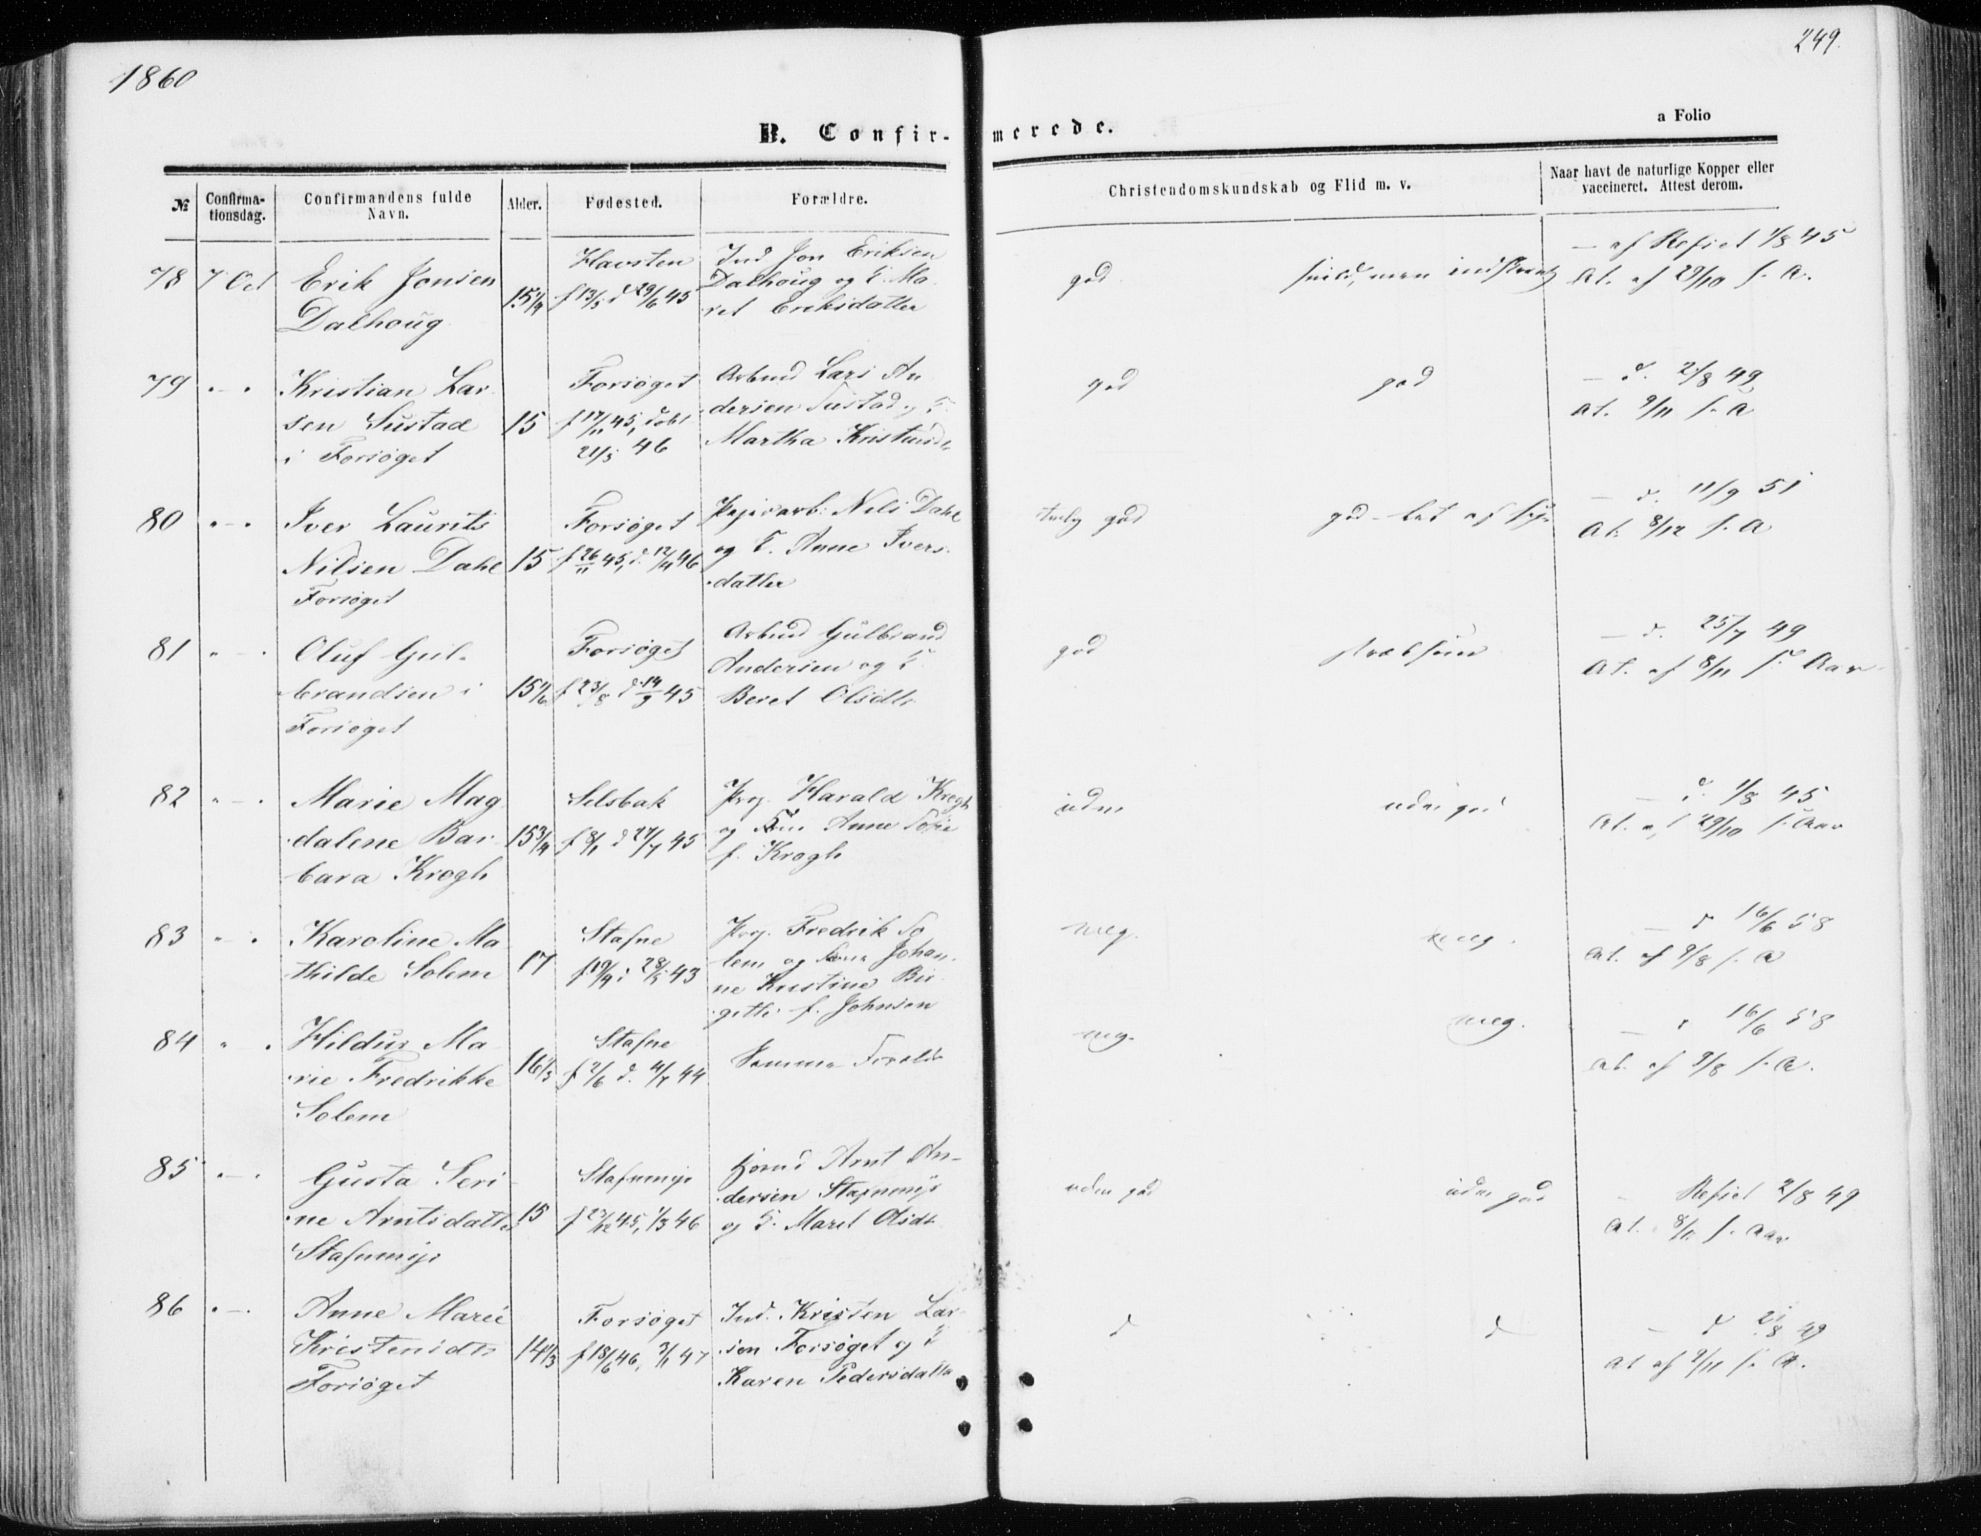 1860
249.
a Folio
B. Confir-merede.
№
Confirma-
tionsdag.
Confirmandens fulde
Navn.
Alder.
Fødested.
Forældre.
Christendomskundskab og Flid m. v.
Naar havt de naturlige Kopper eller
vaccineret. Attest derom.
78 7 Oct Erik Jonsen
Dalhoug
15 1/4
Havsten
f 13/5 d 29/6 45
Ind Jon Eriksen
Dalhoug og E. Ma
ret Eriksdatter
god
men
- af Refset 1/8 45
At. af 29/10 f. A.
79 " - " Kristian Lar
sen Sustad
i Forsøget
15
Forsøget
f 17/11 45, døbt
21/5 46
Arbmd Lars An
dersen Sustad og E.
Martha
god
god
- d. 2/8 49
At. 9/11 f. A
80 " - " Iver Laurits
Nilsen Dahl
Forsøget
15
Forsøget
f 26/11 45, d. 12/4 46
Papirarb. Nils Dahl
og E. Anne Ivers
datter
god
god
- d. 11/9 51
At. 8/12 f. A
81 " - " Oluf Gul-
brandsen i
Forsøget
15 1/6
Forsøget
f 23/8 d. 14/9 45
Arbmd Gulbrand
Andersen og E
Beret Olsdtr
god
stræbsom
- d. 25/7 49
At. af 8/11 f. Aar
82 " - " Marie Mag
dalene Bar
bara Krogh
15 3/4
Selsbak
f 8/1 d 27/7 45
Prop. Harald Krogh
og Anne Sofie
f. Krogh
god
- d. 1/8 45
At. af 29/10 f. Aar
83 " - " Karoline Ma
thilde Solem
17
Stafne
43
Prop. Fredrik So
lem og Johan
ne Kristine Bir
gitte f. Johnsen
meg.
meg.
- d 16/6 58
At. af 9/8 f. A
84 " - " Hildur Ma
rie Fredrikke
Solem
16 1/3
Stafne
f 2/6 d. 11/7 44
Samme Foræld
meg.
meg.
- " 16/6 58
At. af 9/8 f. A.
85 " - " Gusta Seri
ne Arntsdatter
15
45, 1/3 46
Arnt An-
dersen
og E. Maret Olsdt
uden god
god
- Refset 2/8 49
At. 8/11 f. Aar
86 " - " Anne Marie
Kristensdtr
Forsøget
14 1/3
Forsøget
f 18/6 46, 47
Ind. Kristen Lar
sen Forsøget og E
Karen Pedersdatter
d
d
- d 49
At af 9/11 f. A.